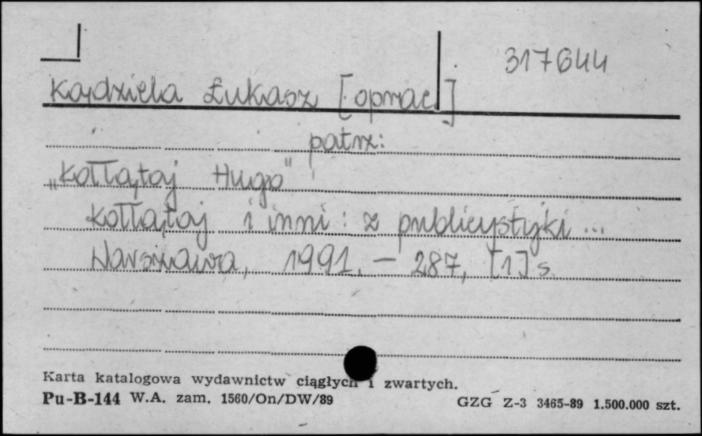 317644
Kądziela Łukasz [oprac.]
patrz:
"Kołłątaj Hugo"
Kołłątaj i inni : z publicystyki ...
Warszawa, 1991. – 287, [1] s.
Karta katalogowa wydawnictw ciągłych i zwartych.
Pu-B-144 W.A. zam. 1560/On/DW/89 GZG Z-3 3465-89 1.500.000 szt.